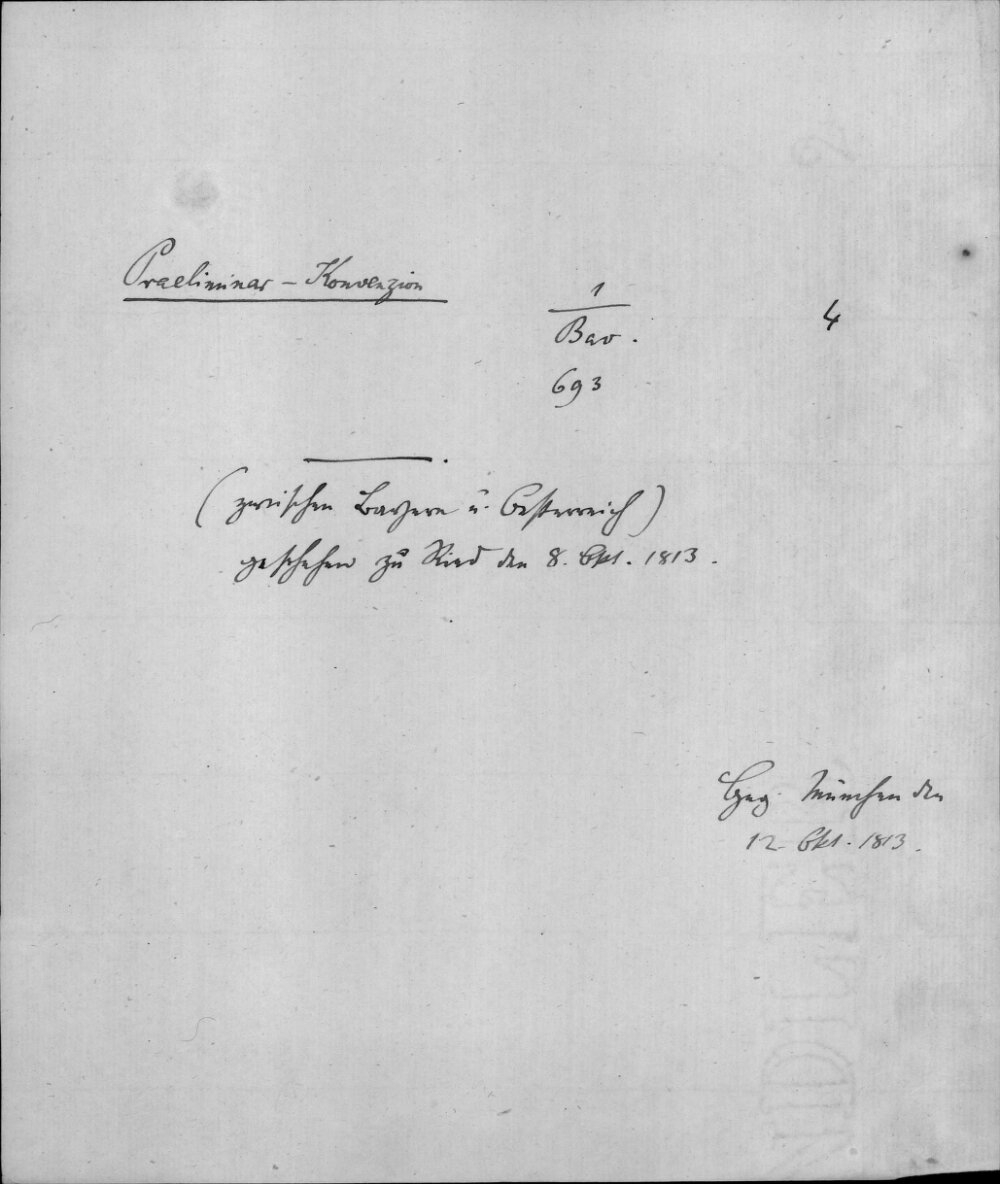 Praeliminar - Konvenzion
1
Bav.
693
4
(zwischen Bayern u. Oesterreich)
geschehen zu Ried den 8. Okt. 1813.
Geg. München den
12. Okt. 1813.